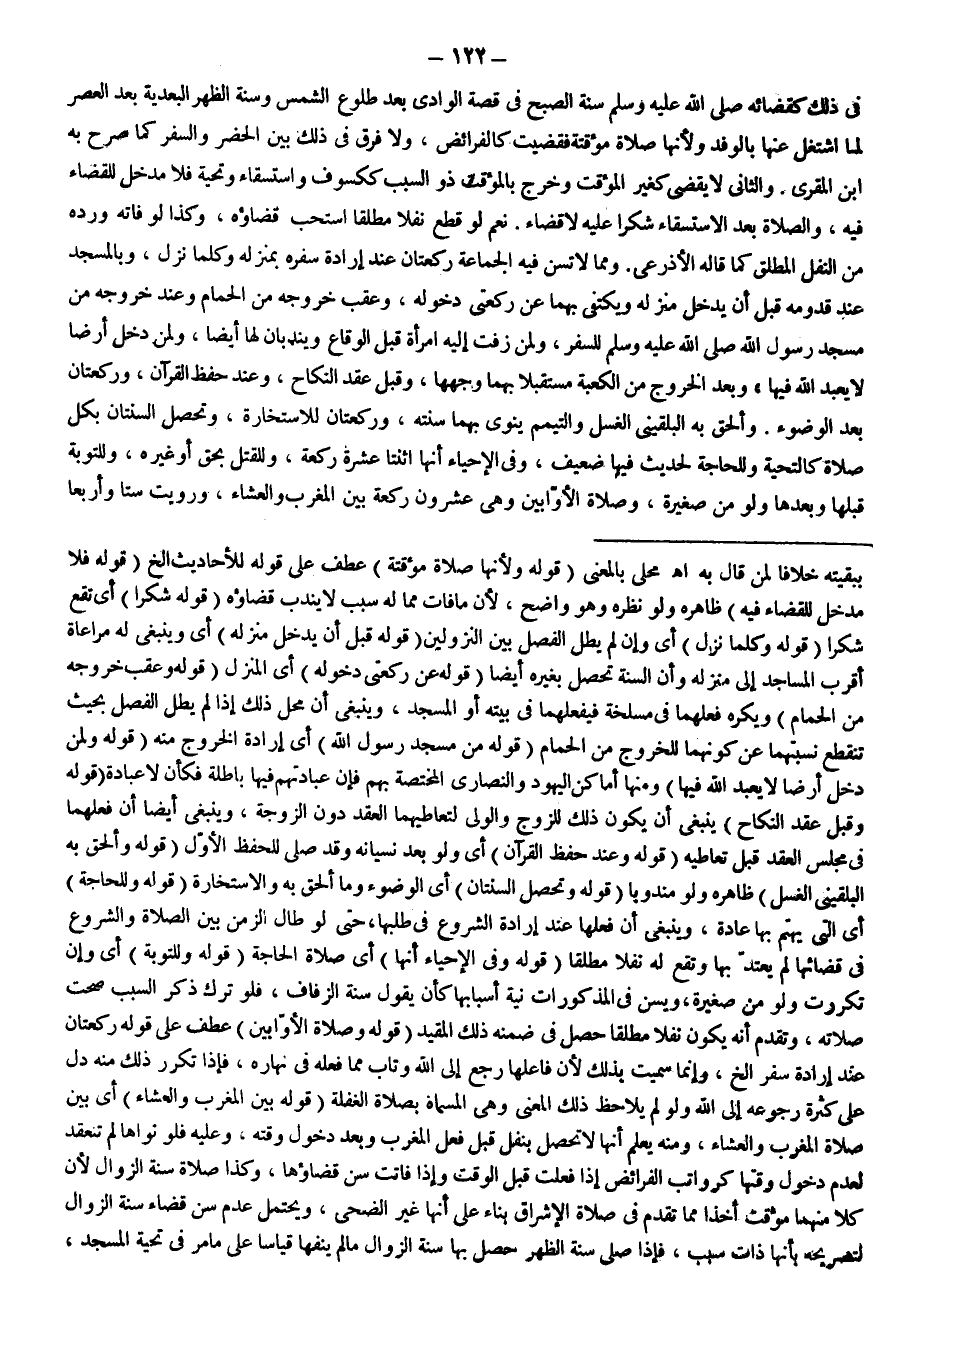 – ١٢٢ –
فى ذلك كقضائه صلى الله عليه وسلم سنة الصبح فى قصة الوادى بعد طلوع الشمس وسنة الظهر البعدية بعد العصر
لما اشتغل عنها بالوفد ولأنها صلاة مؤقتة فقضيت كالفرائض ، ولا فرق فى ذلك بين الحضر والسفر كما صرح به
ابن المقرى . والثانى لا يقضى كغير المؤقت وخرج بالمؤقت ذو السبب ككسوف واستسقاء وتحية فلا مدخل للقضاء
فيه ، والصلاة بعد الاستسقاء شكرا عليه لاقضاء . نعم لو قطع نفلا مطلقا استحب قضاؤه ، وكذا لو فاته ورده
من النفل المطلق كما قاله الأذرعى . ومما لاتسن فيه الجماعة ركعتان عند إرادة سفره بمنزله وكلما نزل ، وبالمسجد
عند قدومه قبل أن يدخل منزله ويكتفى بهما عن ركعتى دخوله ، وعقب خروجه من الحمام وعند خروجه من
مسجد رسول الله صلى الله عليه وسلم للسفر ، ولمن زفت إليه امرأة قبل الوقاع ويندبان لها أيضا ، ولمن دخل أرضا
لايعبد الله فيها ، وبعد الخروج من الكعبة مستقبلا بهما وجهها ، وقبل عقد النكاح ، وعند حفظ القرآن ، وركعتان
بعد الوضوء . وألحق به البلقينى الغسل والتيمم ينوى بهما سنته ، وركعتان للاستخارة ، وتحصل السنتان بكل
صلاة كالتحية وللحاجة لحديث فيها ضعيف ، وفى الإحياء أنها اثنتا عشرة ركعة ، وللقتل بحق أوغيره ، وللتوبة
قبلها وبعدها ولو من صغيرة ، وصلاة الأوّابين وهى عشرون ركعة بين المغرب والعشاء ، ورويت ستا وأربعا
ببقيته خلافا لمن قال به اه محلى بالمعنى ( قوله ولأنها صلاة مؤقتة ) عطف على قوله للأحاديث الخ ( قوله فلا
مدخل للقضاء فيه ) ظاهره ولو نظره وهو واضح ، لأن مافات مما له سبب لايندب قضاؤه ( قوله شكرا ) أى تقع
شكرا ( قوله وكلما نزل ) أى وإن لم يطل الفصل بين النزولين ( قوله قبل أن يدخل منزله ) أى وينبغى له مراعاة
أقرب المساجد إلى منزله وأن السنة تحصل بغيره أيضا ( قوله عن ركعتى دخوله ) أى المنزل ( قوله وعقب خروجه
من الحمام ) ويكره فعلهما فى مسلخة فيفعلهما فى بيته أو المسجد ، وينبغى أن محل ذلك إذا لم يطل الفصل بحيث
تنقطع نسبتهما عن كونهما للخروج من الحمام ( قوله من مسجد رسول الله ) أى إرادة الخروج منه ( قوله ولمن
دخل أرضا لايعبد الله فيها ) ومنها أماكن اليهود والنصارى المختصة بهم فإن عبادتهم فيها باطلة فكأن لاعبادة ( قوله
وقبل عقد النكاح ) ينبغى أن يكون ذلك للزوج والولى لتعاطيهما العقد دون الزوجة ، وينبغى أيضا أن فعلهما
فى مجلس العقد قبل تعاطيه ( قوله وعند حفظ القرآن ) أى ولو بعد نسيانه وقد صلى للحفظ الأوّل ( قوله وألحق به
البلقينى الغسل ) ظاهره ولو مندوبا ( قوله وتحصل السنتان ) أى الوضوء وما ألحق به والاستخارة ( قوله وللحاجة )
أى التى يهتم بها عادة ، وينبغى أن فعلها عند إرادة الشروع فى طلبها ، حتى لو طال الزمن بين الصلاة والشروع
فى قضائها لم يعتدّ بها وتقع له نفلا مطلقا ( قوله وفى الإحياء أنها ) أى صلاة الحاجة ( قوله وللتوبة ) أى وإن
تكررت ولو من صغيرة ، ويسن فى المذكورات نية أسبابها كأن يقول سنة الزفاف ، فلو ترك ذكر السبب صحت
صلاته ، وتقدم أنه يكون نفلا مطلقا حصل فى ضمنه ذلك المقيد ( قوله وصلاة الأوّابين ) عطف على قوله ركعتان
عند إرادة سفر الخ ، وإنما سميت بذلك لأن فاعلها رجع إلى الله وتاب مما فعله فى نهاره ، فإذا تكرر ذلك منه دل
على كثرة رجوعه إلى الله ولو لم يلاحظ ذلك المعنى وهى المسماة بصلاة الغفلة ( قوله بين المغرب والعشاء ) أى بين
صلاة المغرب والعشاء ، ومنه يعلم أنها لاتحصل بنفل قبل فعل المغرب وبعد دخول وقته ، وعليه فلو نواها لم تنعقد
لعدم دخول وقتها كرواتب الفرائض إذا فعلت قبل الوقت وإذا فاتت سن قضاؤها ، وكذا صلاة سنة الزوال لأن
كلا منهما مؤقت أخذا مما تقدم فى صلاة الإشراق بناء على أنها غير الضحى ، ويحتمل عدم سن قضاء سنة الزوال
لتصريحه بأنها ذات سبب ، فإذا صلى سنة الظهر حصل بها سنة الزوال مالم ينفها قياسا على مامر فى تحية المسجد ،